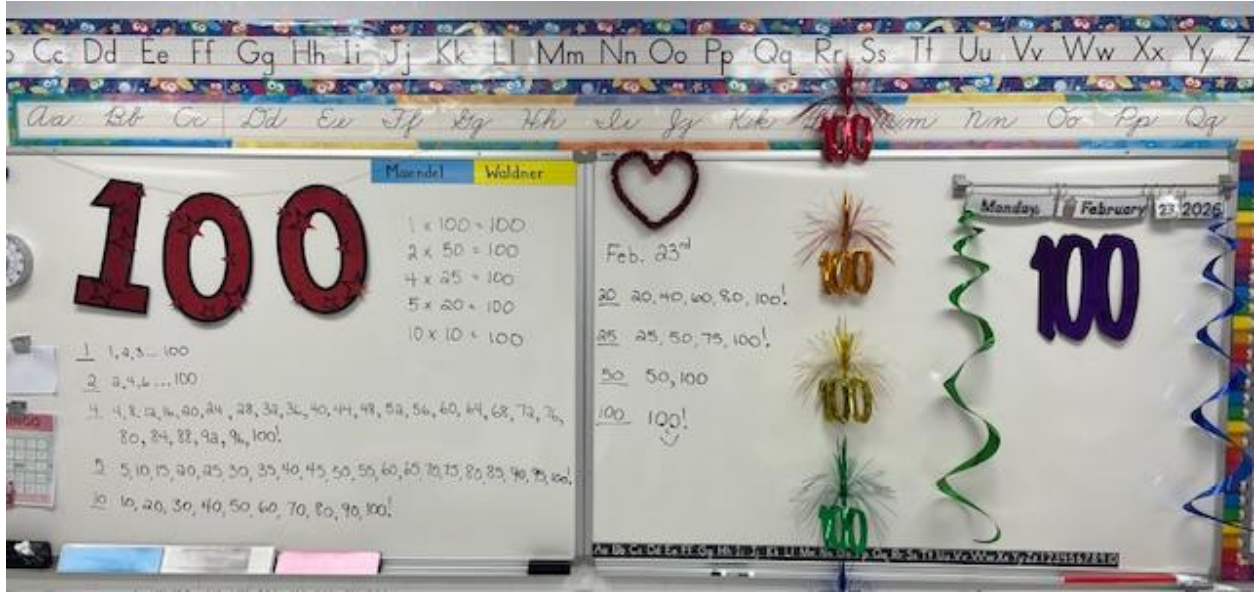 Cc Dd Ee Ff Gg Hh Ii Jj Kk Ll Mm Nn Oo Pp Qq Rr Ss Tt Uu Vv Ww Xx Yy Z
Aa Bb Cc Dd Ee Ff Gg Hh Ii Jj Kk Mm Nn Oo Pp Qq
100
Maendel Waldner
1 x 100 = 100
2 x 50 = 100
4 x 25 = 100
5 x 20 = 100
10 x 10 = 100
1 1, 2, 3... 100
2 2, 4, 6, ... 100
4 4, 8, 12, 16, 20, 24, 28, 32, 36, 40, 44, 48, 52, 56, 60, 64, 68, 72, 76,
80, 84, 88, 92, 96, 100!
5 5, 10, 15, 20, 25, 30, 35, 40, 45, 50, 55, 60, 65, 70, 75, 80, 85, 90, 95, 100!
10 10, 20, 30, 40, 50, 60, 70, 80, 90, 100!
INGO
Feb. 23rd
20 20, 40, 60, 80, 100!
25 25, 50, 75, 100!
50 50, 100
100 100!
100
100
100
100
Monday February 23 2026
100
Aa Bb Cc Dd Ee Ff Gg Hh Ii Jj Kk Ll Mm Nn Oo Pp Qq Rr Ss Tt Uu Vv Ww Xx Yy Zz 1 2 3 4 5 6 7 8 9 10